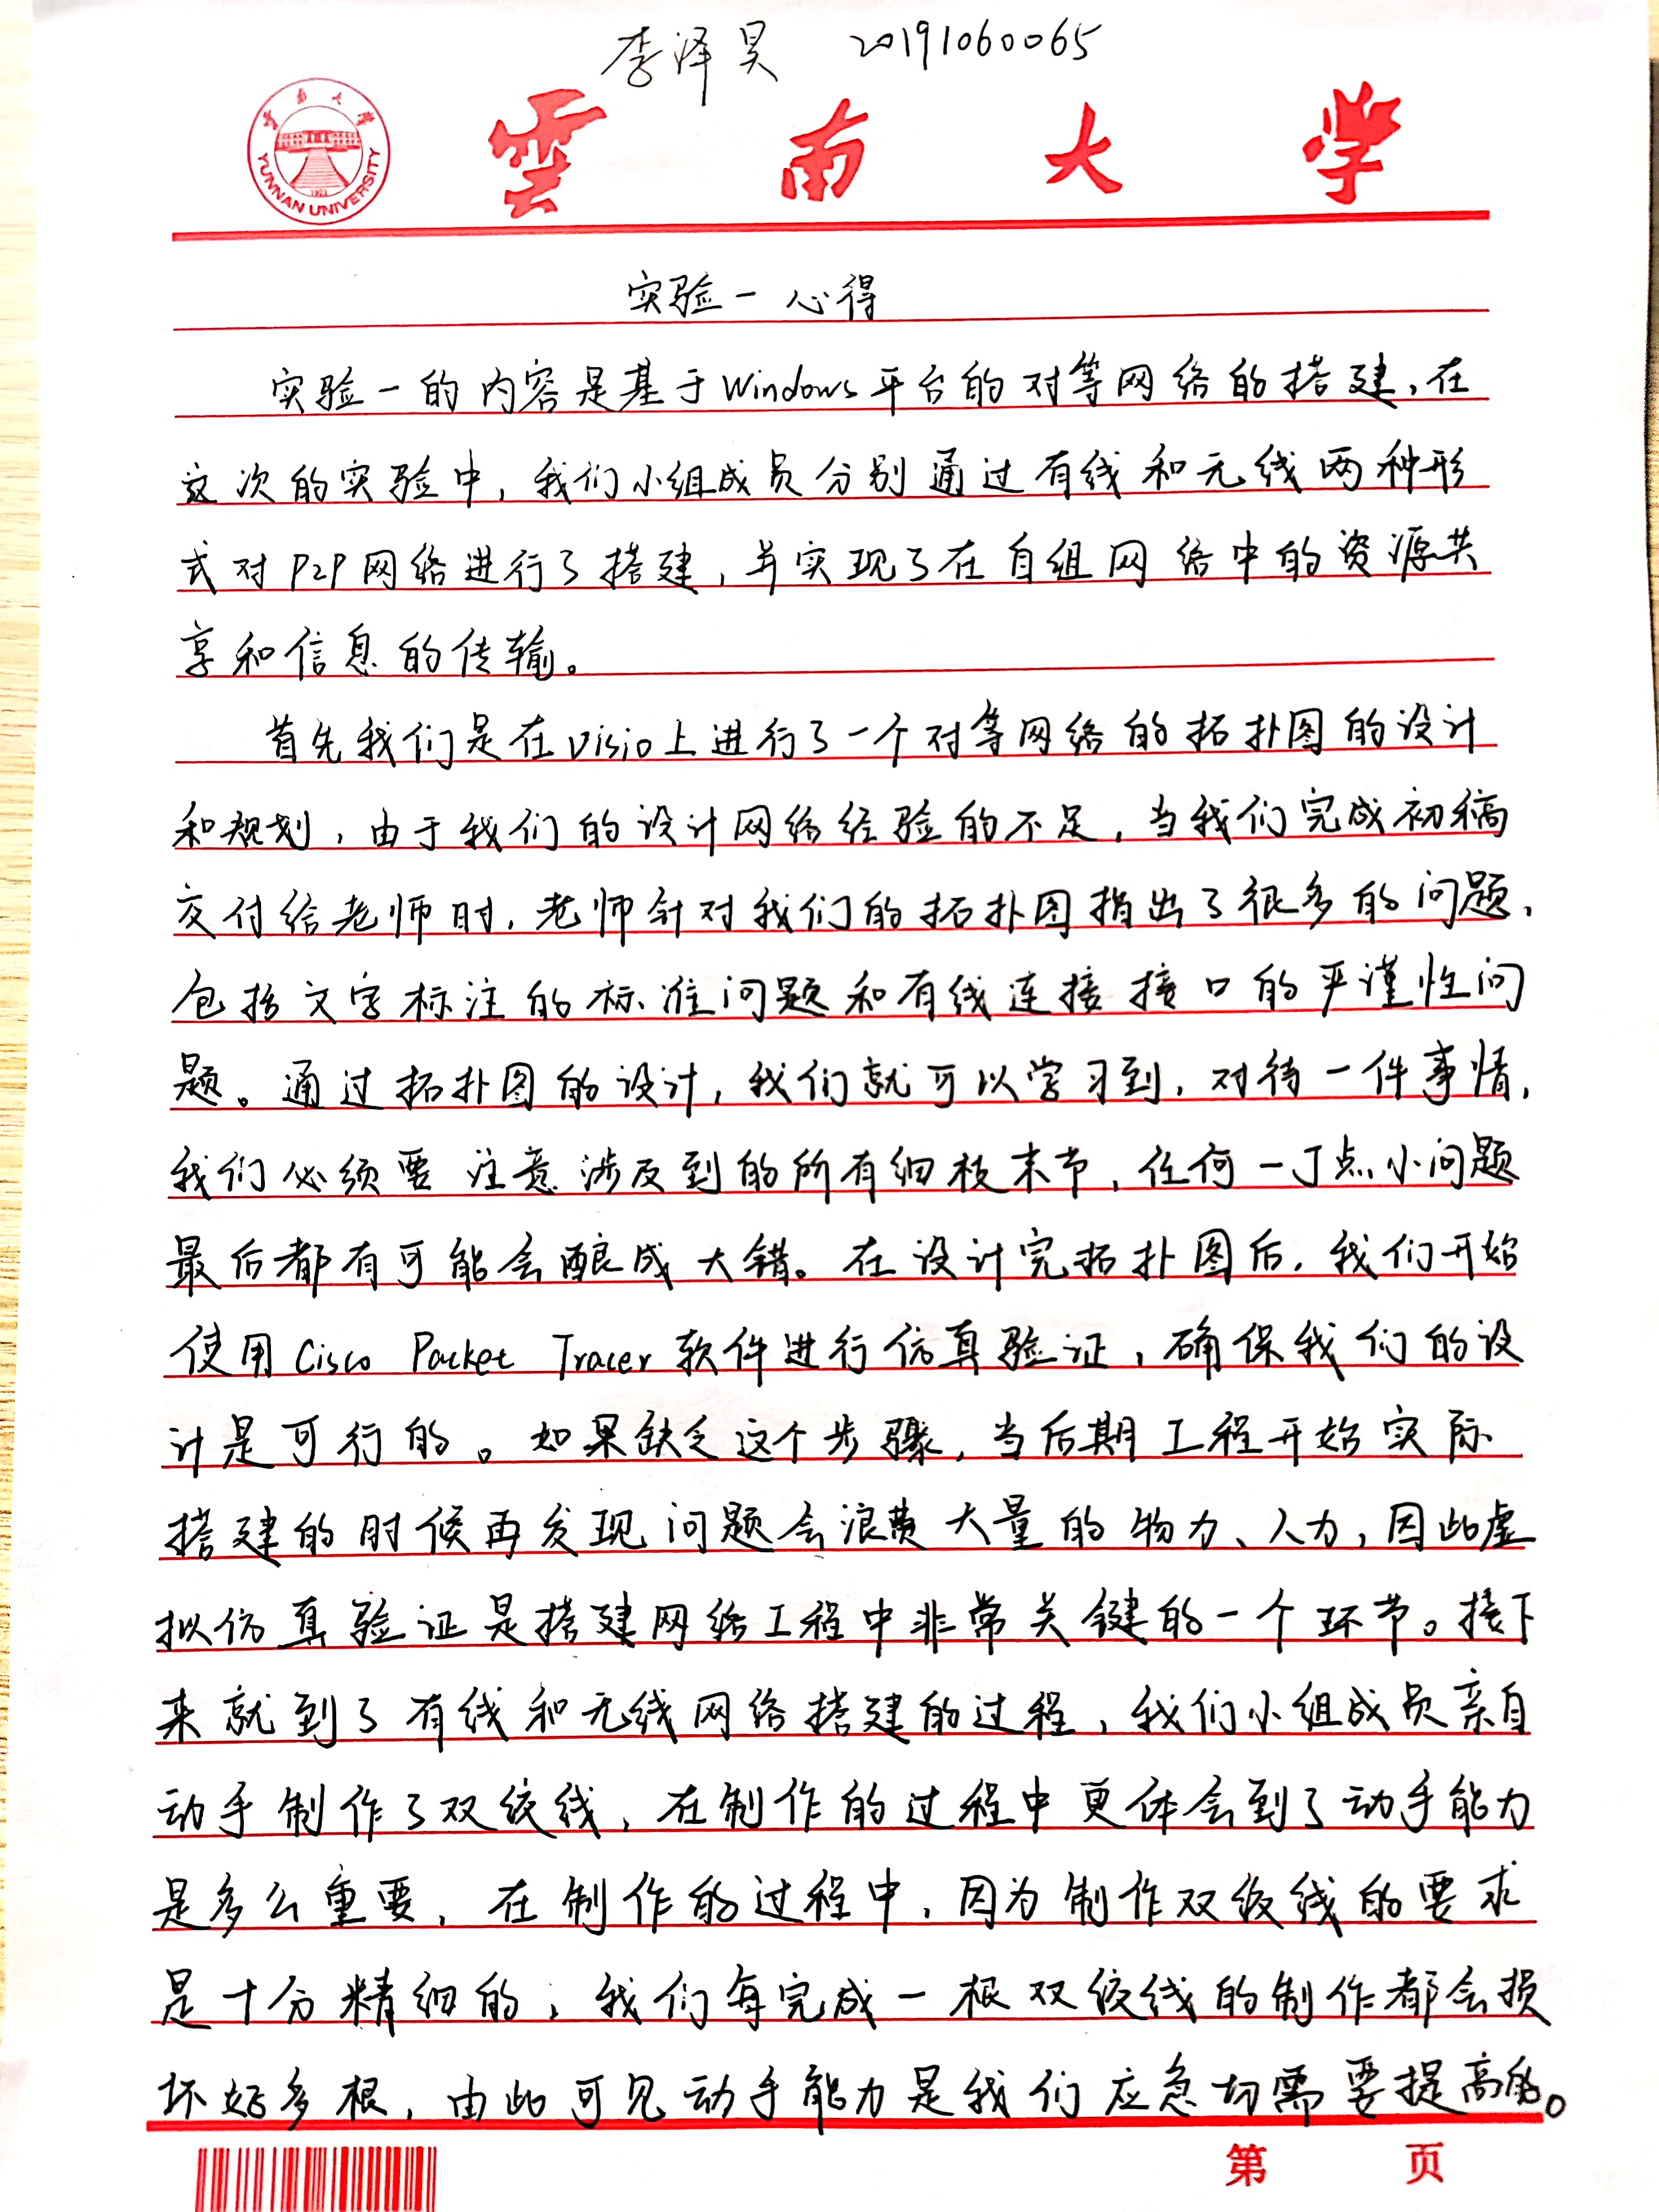 李泽昊 20191060065
雲南大学
雲南大学
YUNNAN UNIVERSITY
1923
实验一心得
实验一的内容是基于Windows平台的对等网络的搭建,在
这次的实验中,我们小组成员分别通过有线和无线两种形
式对P2P网络进行了搭建,并实现了在自组网络中的资源共
享和信息的传输。
首先我们是在Visio上进行了一个对等网络的拓扑图的设计
和规划,由于我们的设计网络经验的不足,当我们完成初稿
交付给老师时,老师针对我们的拓扑图指出了很多的问题,
包括文字标注的标准问题和有线连接接口的严谨性问
题。通过拓扑图的设计,我们就可以学习到,对待一件事情,
我们必须要注意涉及到的所有细枝末节,任何一丁点小问题
最后都有可能会酿成大错。在设计完拓扑图后,我们开始
使用Cisco Packet Tracer软件进行仿真验证,确保我们的设
计是可行的。如果缺乏这个步骤,当后期工程开始实际
搭建的时候再发现问题会浪费大量的物力、人力,因此虚
拟仿真验证是搭建网络工程中非常关键的一个环节。接下
来就到了有线和无线网络搭建的过程,我们小组成员亲自
动手制作了双绞线,在制作的过程中更体会到了动手能力
是多么重要,在制作的过程中,因为制作双绞线的要求
是十分精细的,我们每完成一根双绞线的制作都会损
坏好多根,由此可见动手能力是我们应急切需要提高的。
第 页